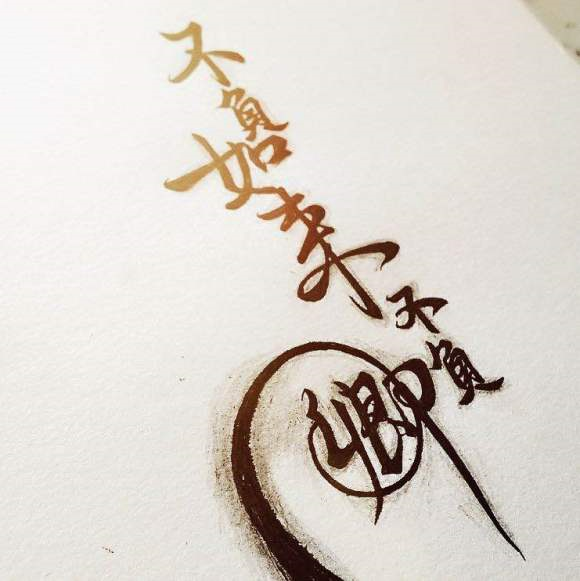 不負如来
不負
卿